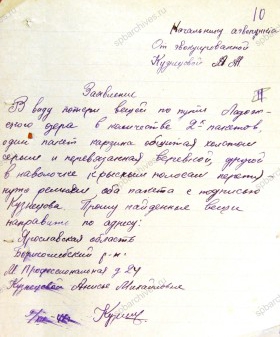 10
Начальнику эвакопункта
От эвакуированной
Кузнецовой А М
Заявление
В виду потери вещей по пути Ладож-
ского озера в количестве 2х пакетов,
один пакет корзина обшитая холстом
серым и перевязанная веревкой, другой
в наволочке с красным полосам перетя-
нуто ремнями оба пакета с подписью
Кузнецова. Прошу найденные вещи
направить по адресу:
Ярославская область
Борисоглебский р-н.
М Профессиональная д 24
Кузнецовой Анисье Михайловне
Кузнец